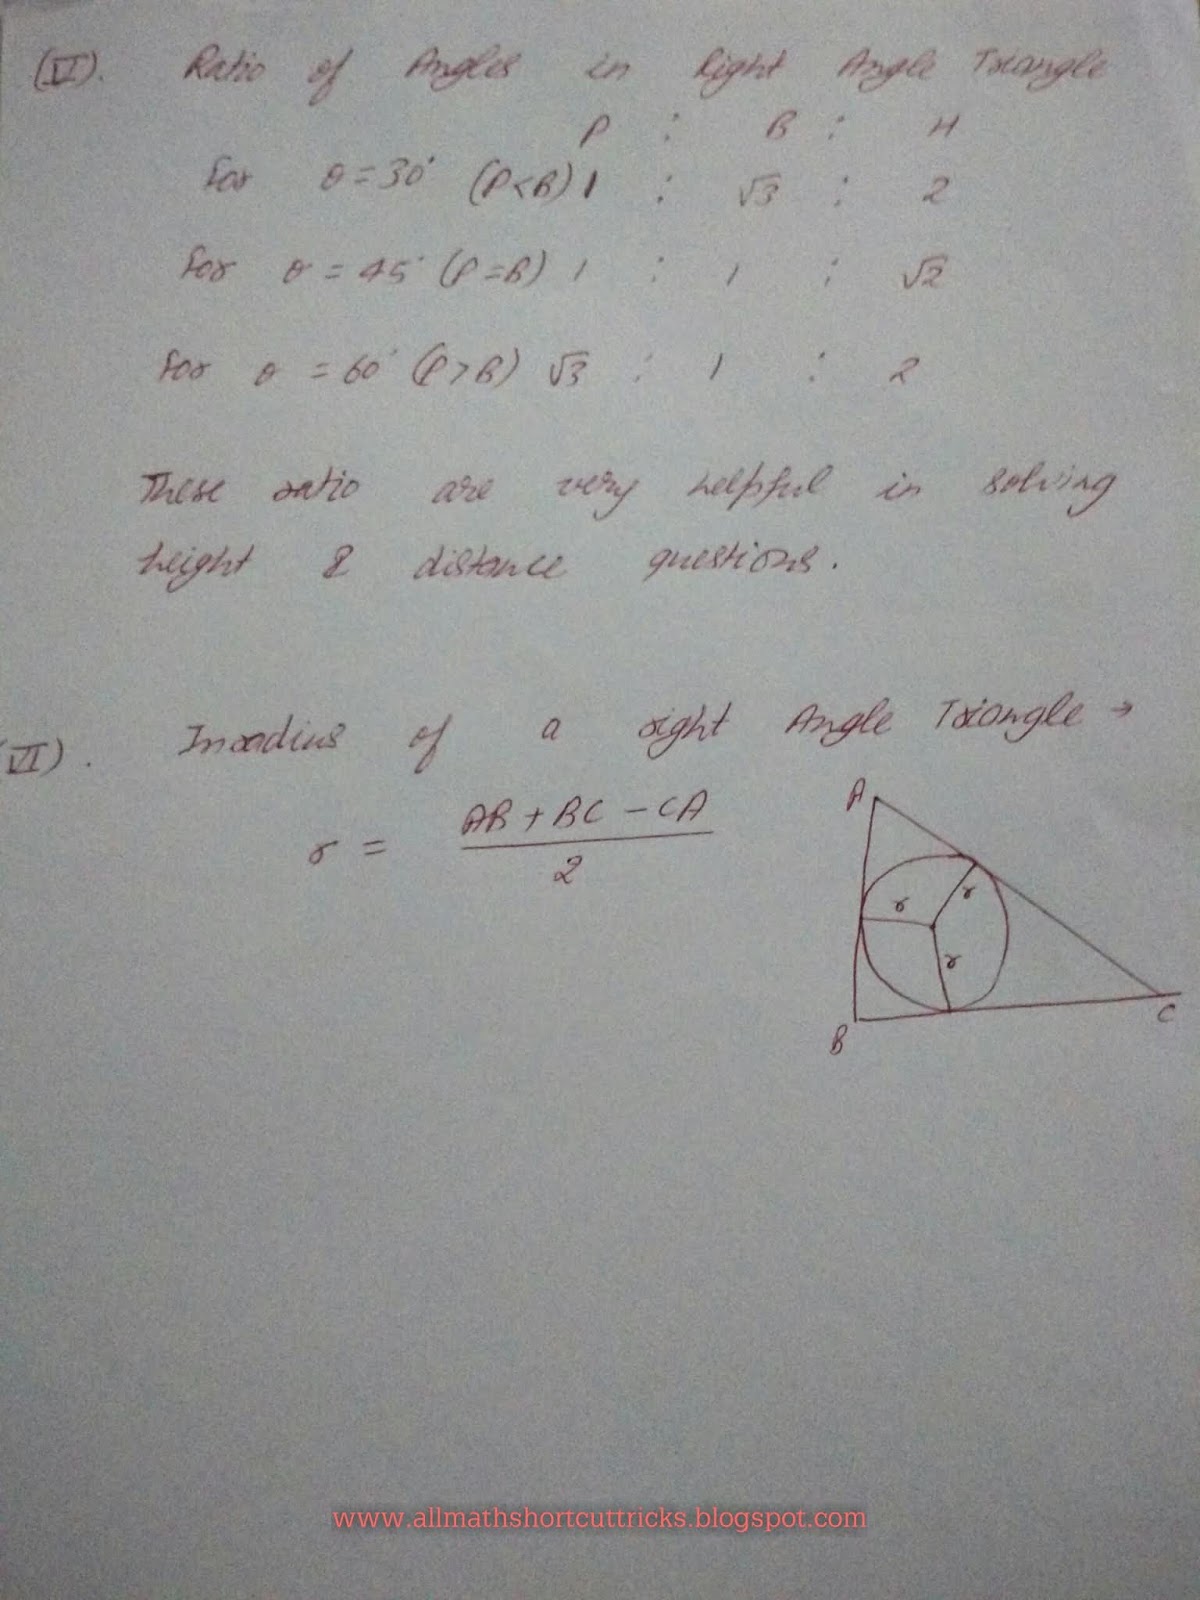 (VI). Ratio of Angles in Right Angle Triangle
P : B : H
For θ = 30° (P<B) 1 : √3 : 2
For θ = 45° (P=B) 1 : 1 : √2
For θ = 60° (P>B) √3 : 1 : 2
These ratio are very helpful in solving
height & distance questions.
(VI). Inradius of a right Angle Triangle →
r = AB + BC - CA
2
A
r
r
r
B
C
www.allmathshortcuttricks.blogspot.com